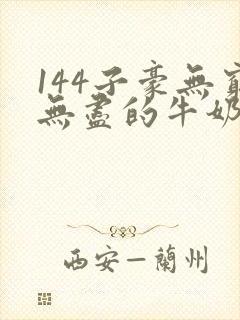 144子豪無窮
無盡的牛奶
西安—蘭州